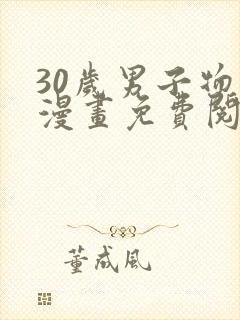 30歲男子物
漫畫免費閱
董成風